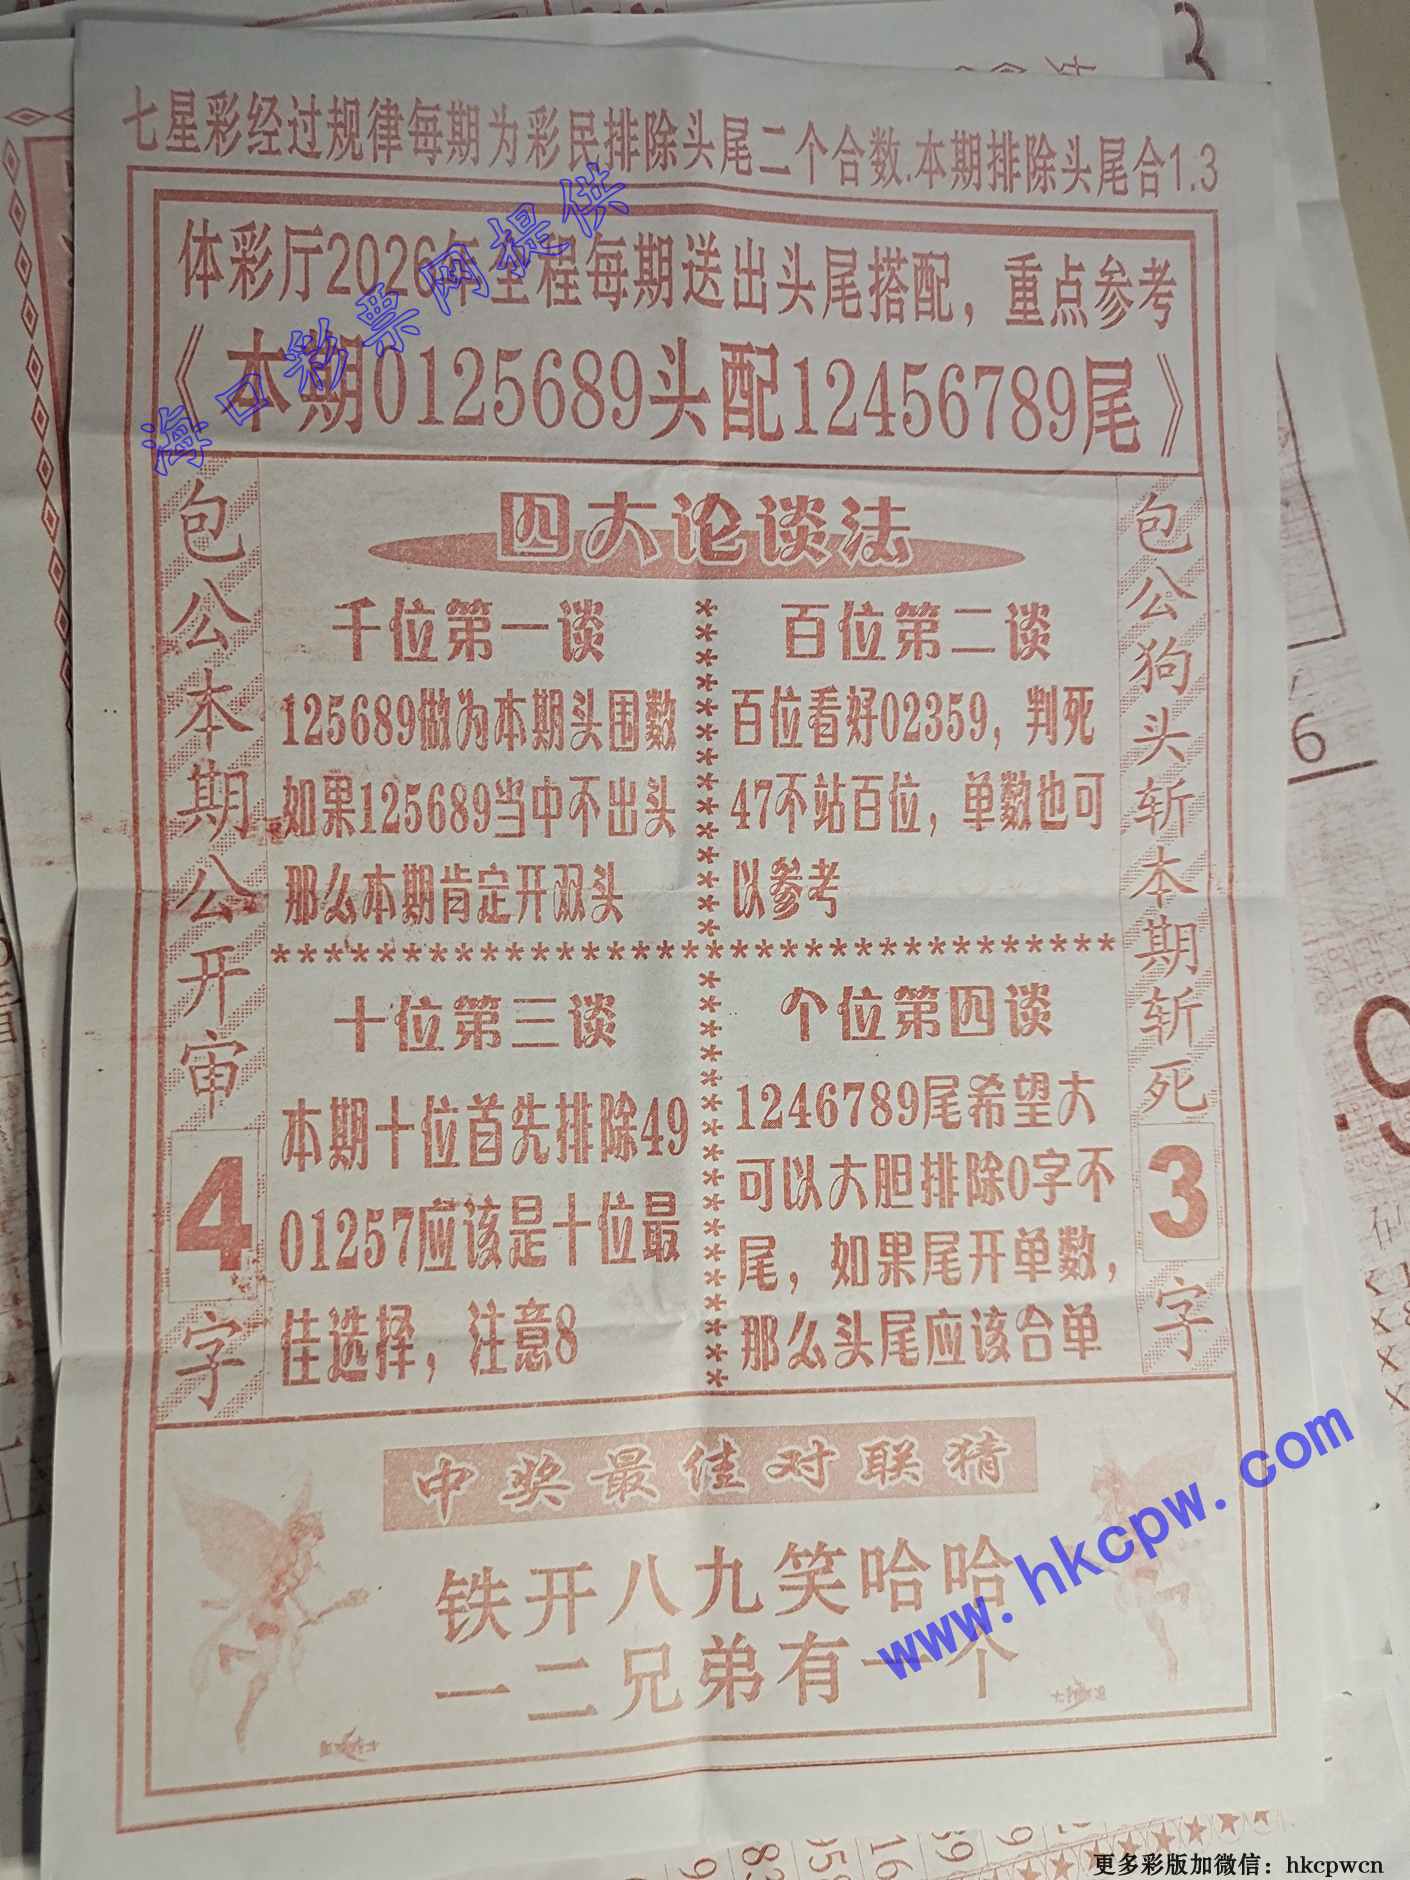 七星彩经过规律每期为彩民排除头尾二个合数.本期排除头尾合1.3
体彩厅2026年全程每期送出头尾搭配，重点参考
《本期0125689头配12456789尾》
海口彩票网提供
包公本期公开审4字
四大论谈法
千位第一谈
125689做为本期头围数
如果125689当中不出头
那么本期肯定开双头
百位第二谈
百位看好02359，判死
47不站百位，单数也可
以参考
十位第三谈
本期十位首先排除49
01257应该是十位最
佳选择，注意8
个位第四谈
1246789尾希望大
可以大胆排除0字不
尾，如果尾开单数，
那么头尾应该合单
包公狗头斩本期斩死3字
中奖最佳对联猜
铁开八九笑哈哈
一二兄弟有一个
www.hkcpw.com
更多彩版加微信：hkcpwcn